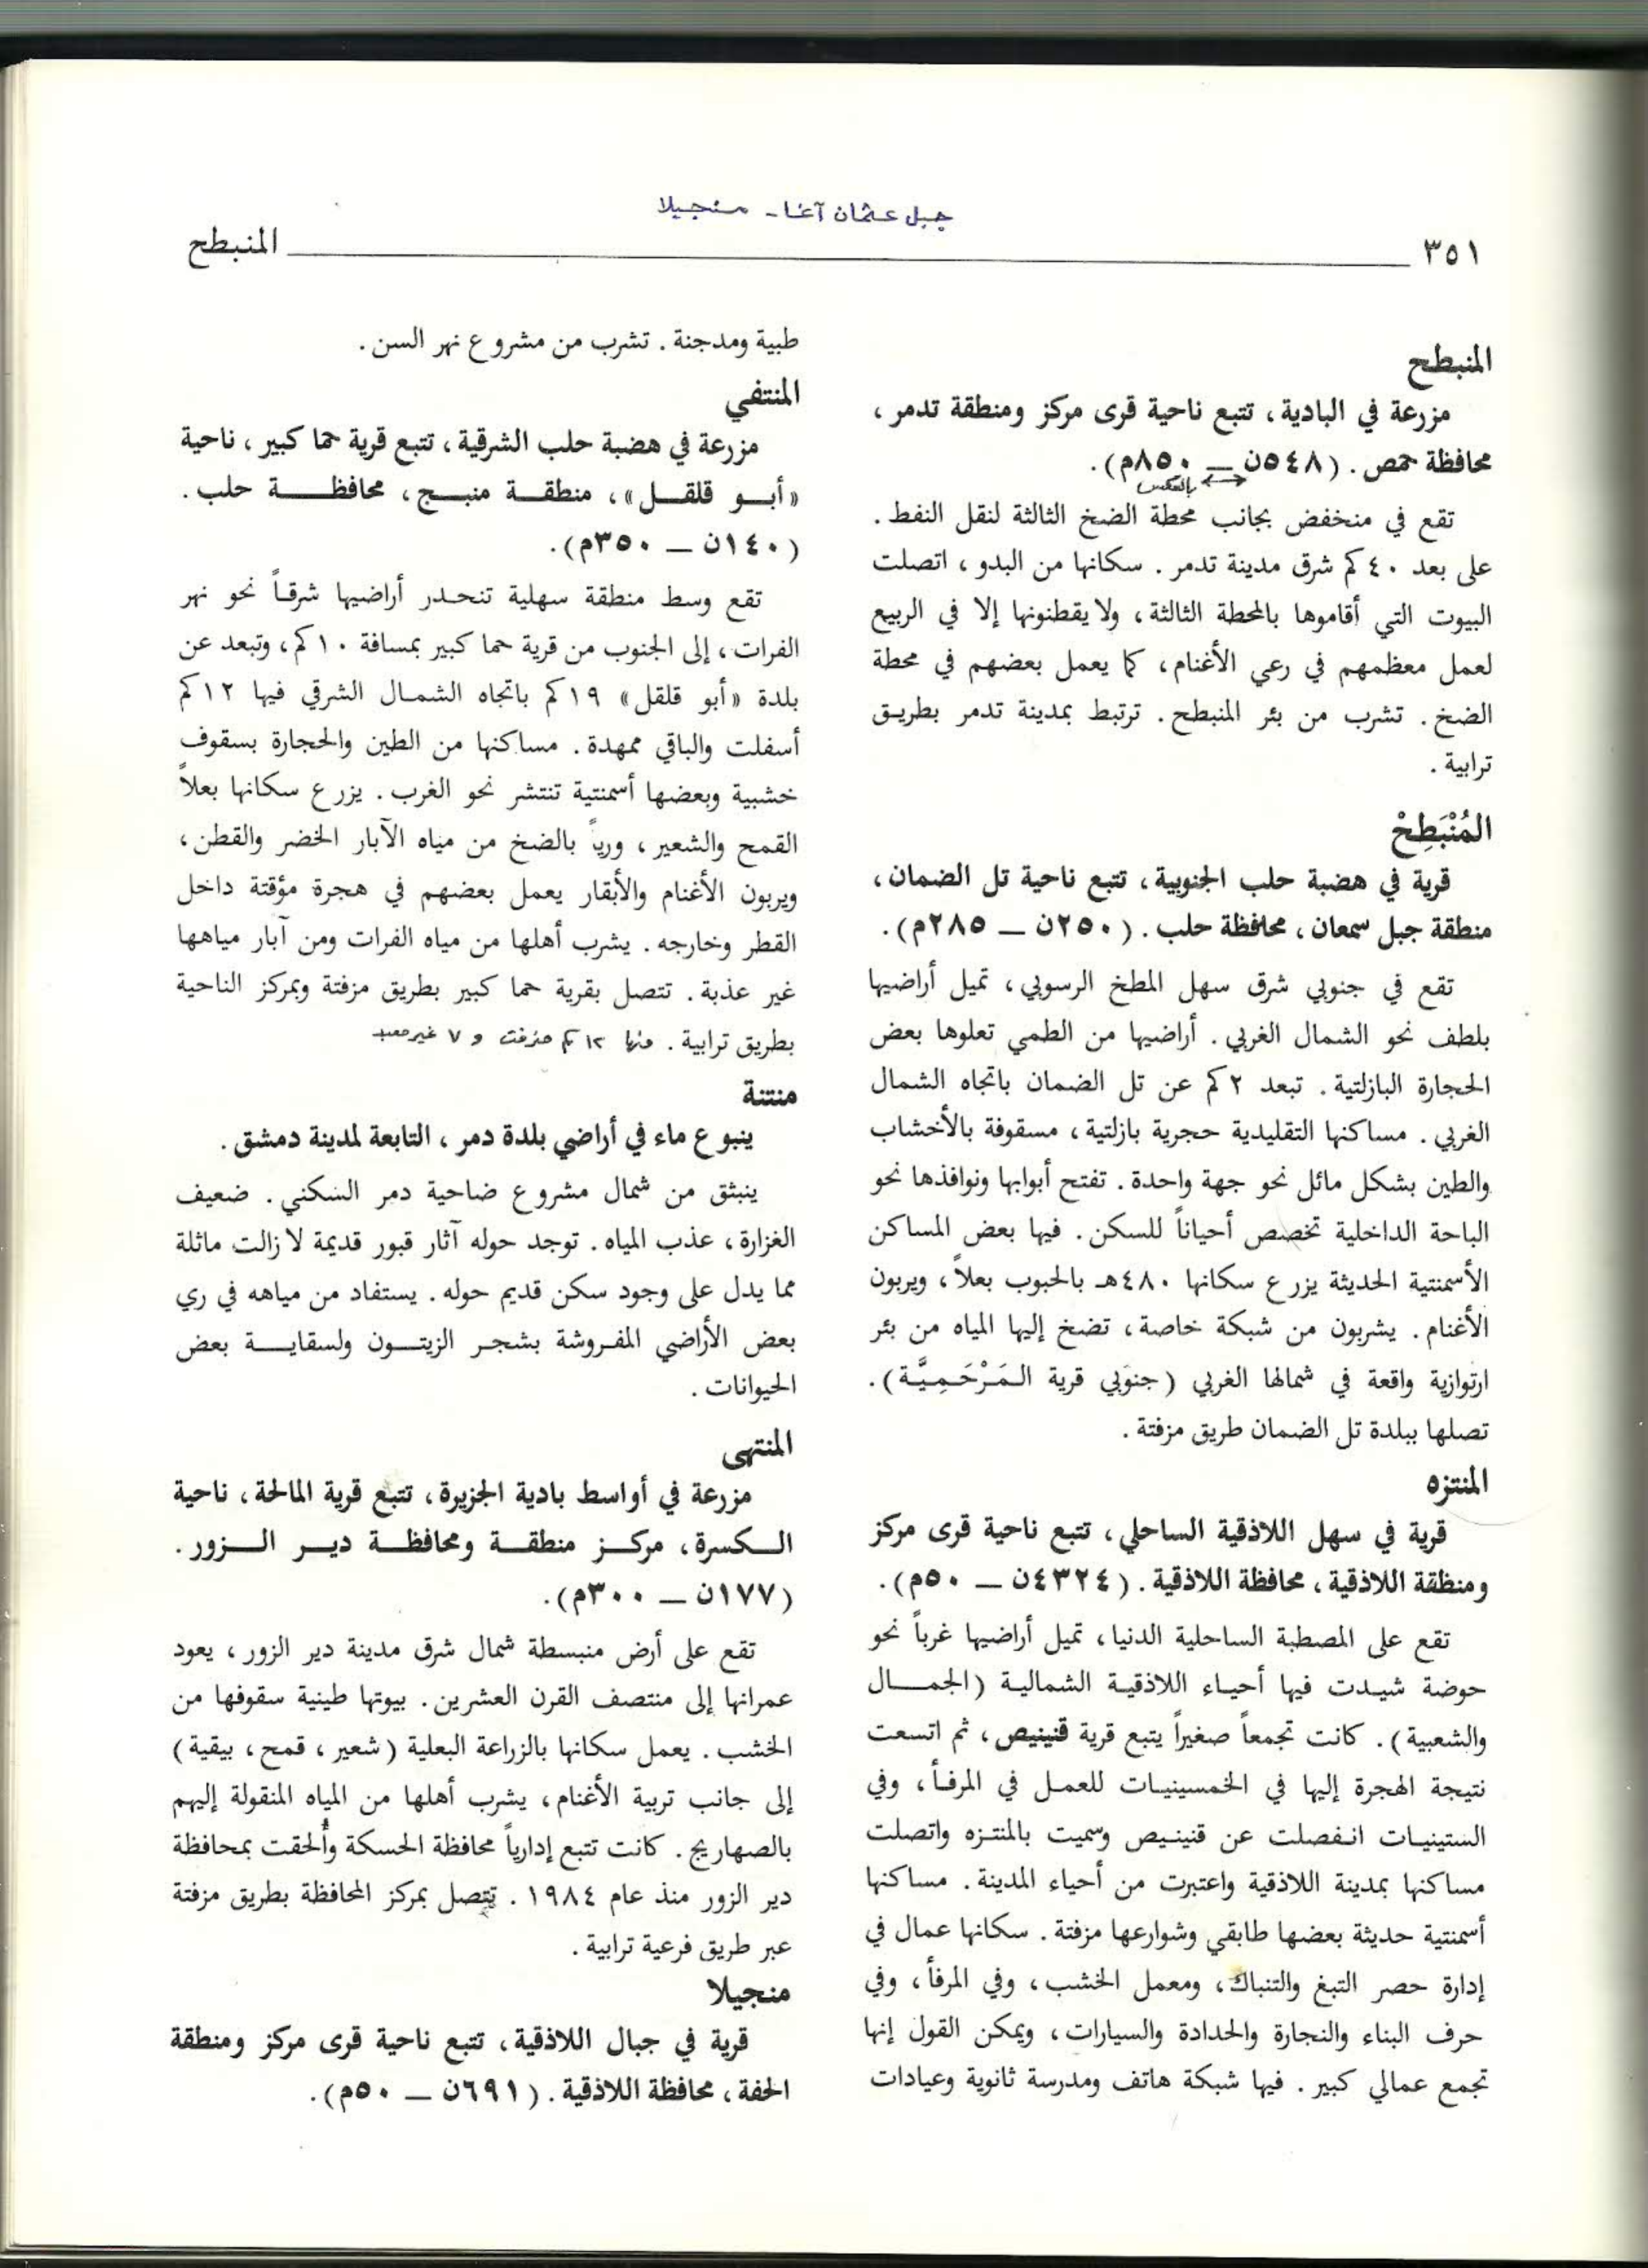 جبل عثمان آغا - منجيلا
٣٥١ المنبطح
المنبطح
مزرعة في البادية، تتبع ناحية قرى مركز ومنطقة تدمر،
محافظة حمص. (٥٤٨ن — ٨٥٠م).
بالعكس
تقع في منخفض بجانب محطة الضخ الثالثة لنقل النفط.
على بعد ٤٠كم شرق مدينة تدمر. سكانها من البدو، اتصلت
البيوت التي أقاموها بالمحطة الثالثة، ولا يقطنونها إلا في الربيع
لعمل معظمهم في رعي الأغنام، كما يعمل بعضهم في محطة
الضخ. تشرب من بئر المنبطح. ترتبط بمدينة تدمر بطريق
ترابية.
المُنْبَطِحْ
قرية في هضبة حلب الجنوبية، تتبع ناحية تل الضمان،
منطقة جبل سمعان، محافظة حلب. (٢٥٠ن — ٢٨٥م).
تقع في جنوبي شرق سهل المطخ الرسوبي، تميل أراضيها
بلطف نحو الشمال الغربي. أراضيها من الطمي تعلوها بعض
الحجارة البازلتية. تبعد ٢كم عن تل الضمان باتجاه الشمال
الغربي. مساكنها التقليدية حجرية بازلتية، مسقوفة بالأخشاب
والطين بشكل مائل نحو جهة واحدة. تفتح أبوابها ونوافذها نحو
الباحة الداخلية تخصص أحياناً للسكن. فيها بعض المساكن
الأسمنتية الحديثة يزرع سكانها ٤٨٠هـ بالحبوب بعلاً، ويربون
الأغنام. يشربون من شبكة خاصة، تضخ إليها المياه من بئر
ارتوازية واقعة في شمالها الغربي (جنوبي قرية المَرْحَمِيَّة).
تصلها ببلدة تل الضمان طريق مزفتة.
المنتزه
قرية في سهل اللاذقية الساحلي، تتبع ناحية قرى مركز
ومنطقة اللاذقية، محافظة اللاذقية. (٤٣٢٤ن — ٥٠م).
تقع على المصطبة الساحلية الدنيا، تميل أراضيها غرباً نحو
حوضة شيدت فيها أحياء اللاذقية الشمالية (الجمال
والشعبية). كانت تجمعاً صغيراً يتبع قرية قنينيص، ثم اتسعت
نتيجة الهجرة إليها في الخمسينيات للعمل في المرفأ، وفي
الستينيات انفصلت عن قنينيص وسميت بالمنتزه واتصلت
مساكنها بمدينة اللاذقية واعتبرت من أحياء المدينة. مساكنها
أسمنتية حديثة بعضها طابقي وشوارعها مزفتة. سكانها عمال في
إدارة حصر التبغ والتنباك، ومعمل الخشب، وفي المرفأ، وفي
حرف البناء والنجارة والحدادة والسيارات، ويمكن القول إنها
تجمع عمالي كبير. فيها شبكة هاتف ومدرسة ثانوية وعيادات
طبية ومدجنة. تشرب من مشروع نهر السن.
المنتفي
مزرعة في هضبة حلب الشرقية، تتبع قرية حما كبير، ناحية
«أبو قلقل»، منطقة منبج، محافظة حلب.
(١٤٠ن — ٣٥٠م).
تقع وسط منطقة سهلية تنحدر أراضيها شرقاً نحو نهر
الفرات، إلى الجنوب من قرية حما كبير بمسافة ١٠كم، وتبعد عن
بلدة «أبو قلقل» ١٩كم باتجاه الشمال الشرقي فيها ١٢كم
أسفلت والباقي ممهدة. مساكنها من الطين والحجارة بسقوف
خشبية وبعضها أسمنتية تنتشر نحو الغرب. يزرع سكانها بعلاً
القمح والشعير، ورياً بالضخ من مياه الآبار الخضر والقطن،
ويربون الأغنام والأبقار يعمل بعضهم في هجرة مؤقتة داخل
القطر وخارجه. يشرب أهلها من مياه الفرات ومن آبار مياهها
غير عذبة. تتصل بقرية حما كبير بطريق مزفتة وبمركز الناحية
بطريق ترابية. منها ١٢ كم مزفت و ٧ غير معبد
منتنة
ينبوع ماء في أراضي بلدة دمر، التابعة لمدينة دمشق.
ينبثق من شمال مشروع ضاحية دمر السكني. ضعيف
الغزارة، عذب المياه. توجد حوله آثار قبور قديمة لا زالت ماثلة
مما يدل على وجود سكن قديم حوله. يستفاد من مياهه في ري
بعض الأراضي المفروشة بشجر الزيتون ولسقاية بعض
الحيوانات.
المنتهى
مزرعة في أواسط بادية الجزيرة، تتبع قرية المالحة، ناحية
الكسرة، مركز منطقة ومحافظة دير الزور.
(١٧٧ن — ٣٠٠م).
تقع على أرض منبسطة شمال شرق مدينة دير الزور، يعود
عمرانها إلى منتصف القرن العشرين. بيوتها طينية سقوفها من
الخشب. يعمل سكانها بالزراعة البعلية (شعير، قمح، بيقية)
إلى جانب تربية الأغنام، يشرب أهلها من المياه المنقولة إليهم
بالصهاريج. كانت تتبع إدارياً محافظة الحسكة وألحقت بمحافظة
دير الزور منذ عام ١٩٨٤. تتصل بمركز المحافظة بطريق مزفتة
عبر طريق فرعية ترابية.
منجيلا
قرية في جبال اللاذقية، تتبع ناحية قرى مركز ومنطقة
الحفة، محافظة اللاذقية. (٦٩١ن — ٥٠م).